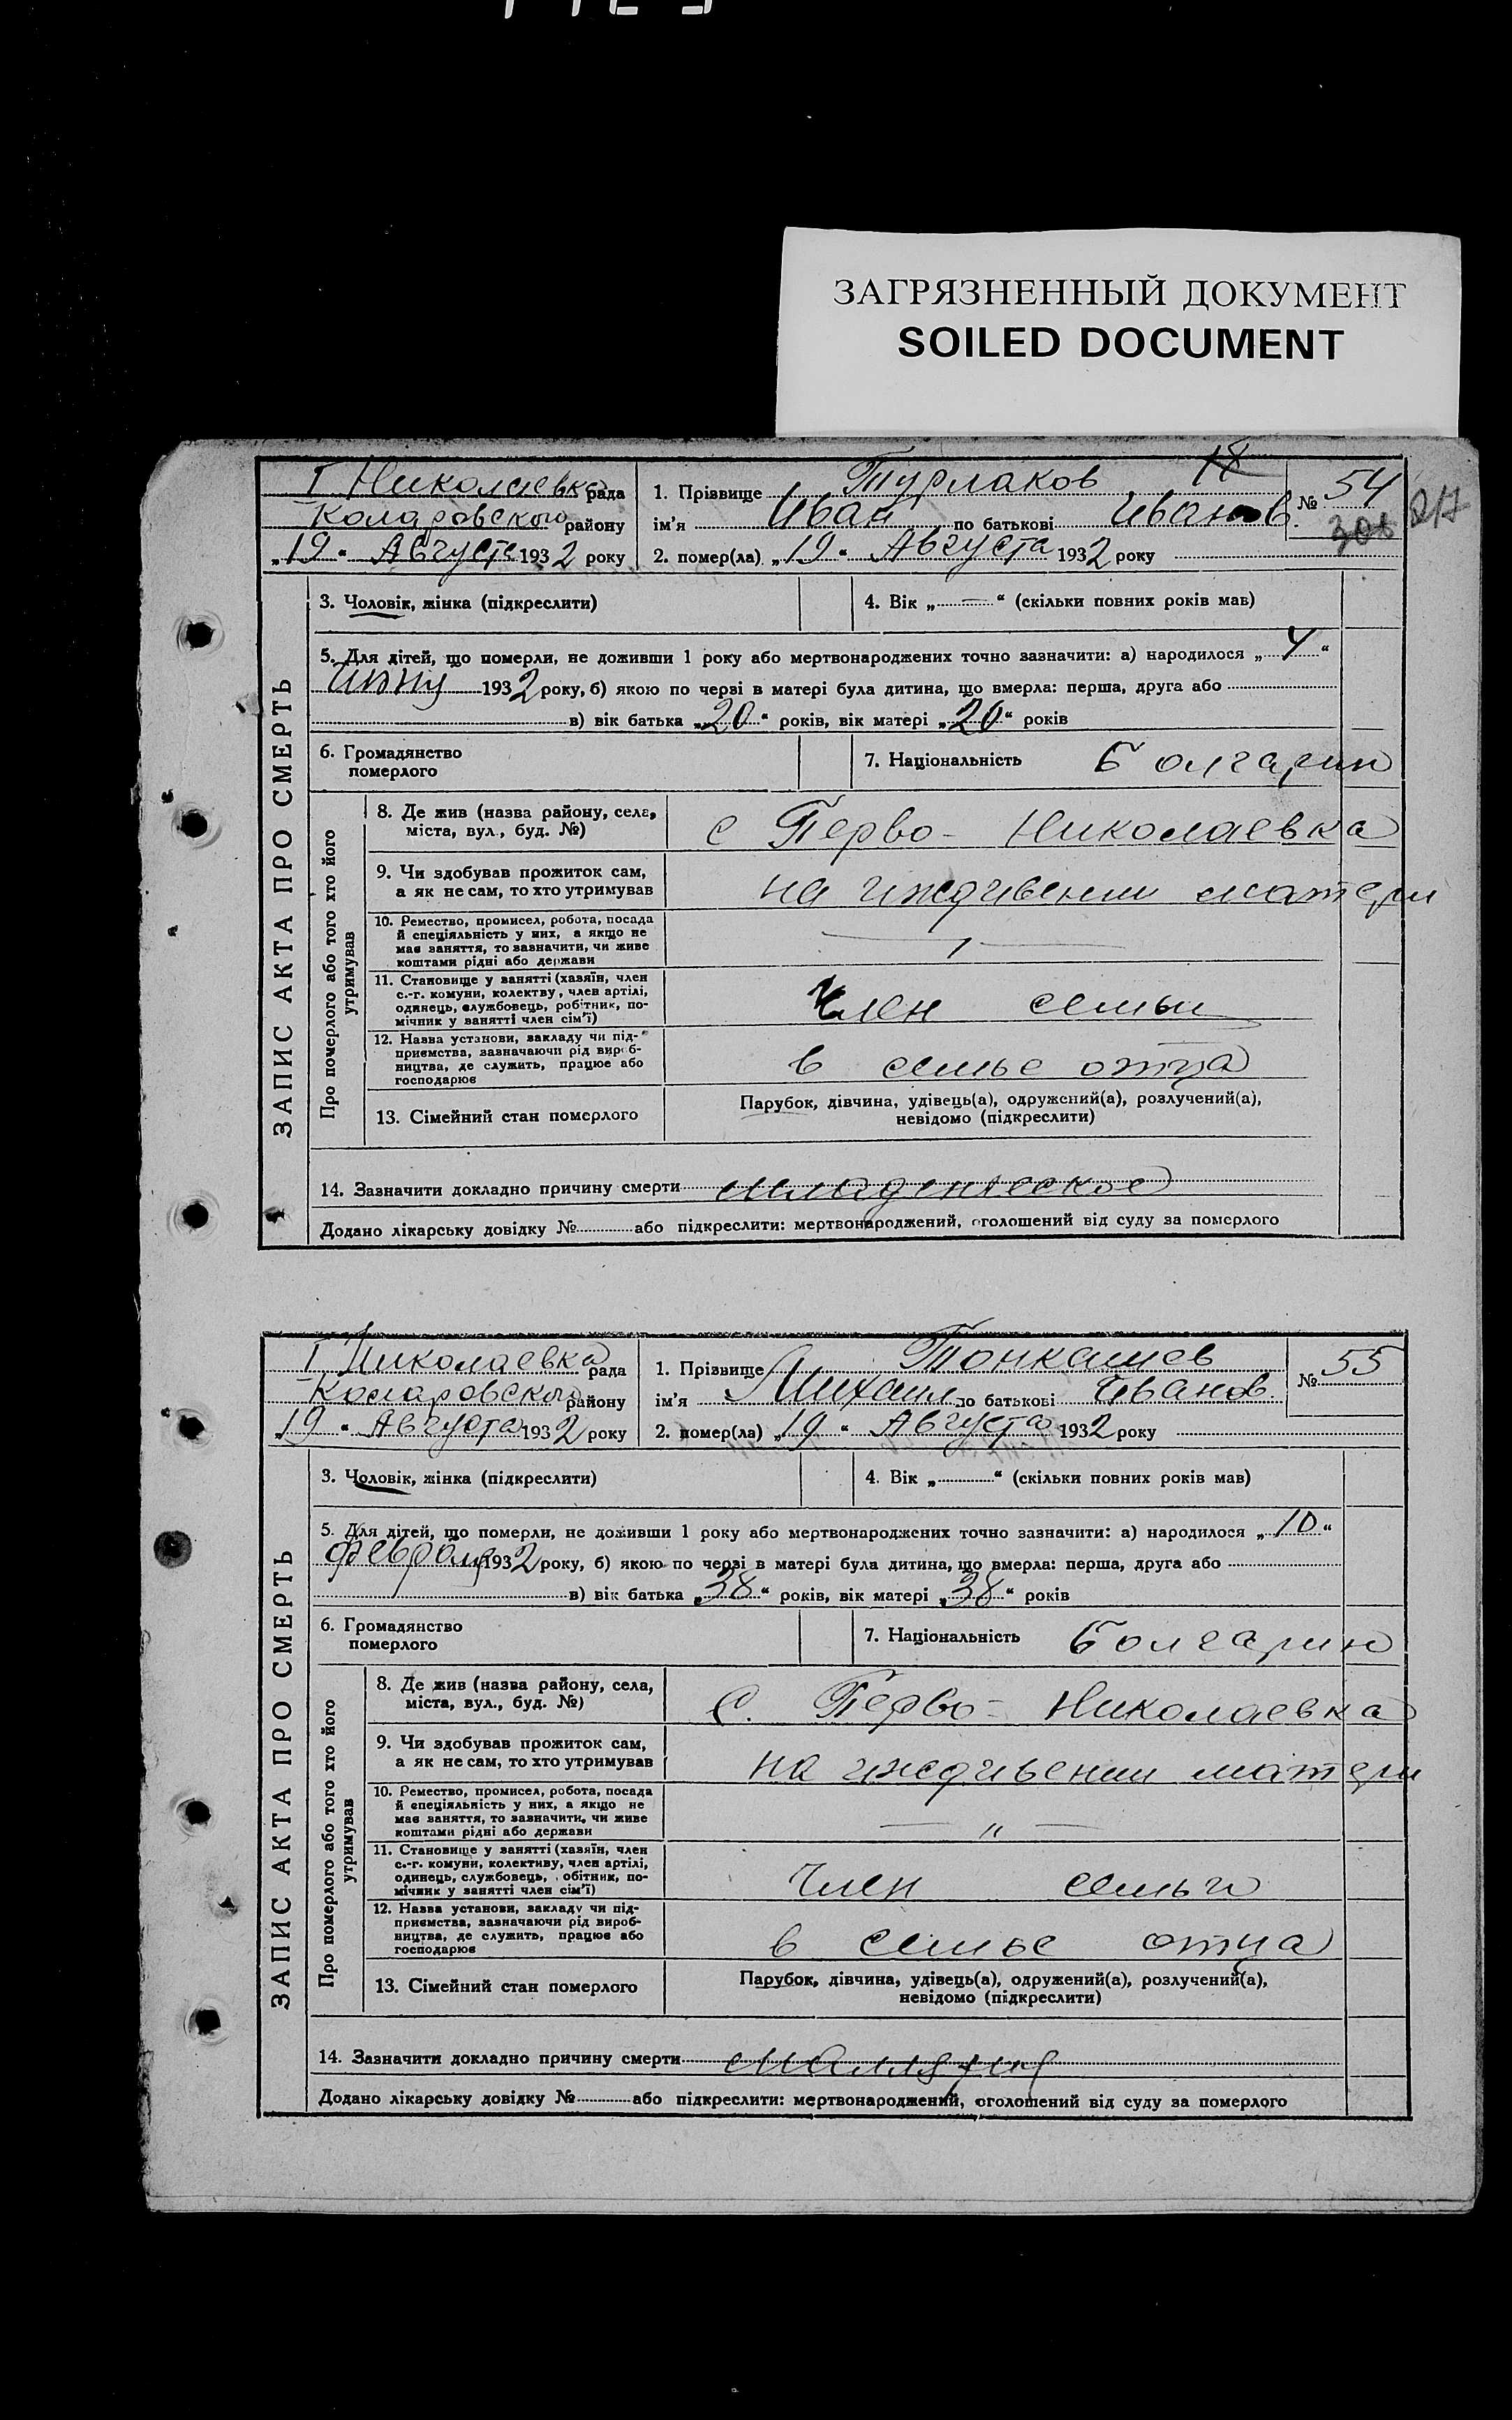 ЗАГРЯЗНЕННЫЙ ДОКУМЕНТ
SOILED DOCUMENT
I Николаевка рада
Коларовского району
„19“ Августа 1932 року
1. Прізвище Турлаков
ім'я Иван по батькові Иванов.
2. помер(ла) „19“ Августа 1932 року
18
№ 54
308 217
ЗАПИС АКТА ПРО СМЕРТЬ
3. Чоловік, жінка (підкреслити)
4. Вік „—“ (скільки повних років мав)
5. Для дітей, що померли, не доживши 1 року або мертвонароджених точно зазначити: а) народилося „4“
1932 року, б) якою по черзі в матері була дитина, що вмерла: перша, друга або
в) вік батька „20“ років, вік матері „20“ років
6. Громадянство
померлого
7. Національність Болгарин
Про померлого або того хто його
утримував
8. Де жив (назва району, села,
міста, вул., буд. №)
с Перво-Николаевка
9. Чи здобував прожиток сам,
а як не сам, то хто утримував
на иждивении матери
10. Ремество, промисел, робота, посада
й спеціяльність у них, а якщо не
має заняття, то зазначити, чи живе
коштами рідні або держави
11. Становище у занятті (хазяїн, член
с.-г. комуни, колектву, член артілі,
одинець, службовець, робітник, по-
мічник у занятті член сім'ї)
Член семьи
12. Назва установи, закладу чи під-
приємства, зазначаючи рід вироб-
ництва, де служить, працює або
господарює
в семье отца
13. Сімейний стан померлого
Парубок, дівчина, удівець(а), одружений(а), розлучений(а),
невідомо (підкреслити)
14. Зазначити докладно причину смерти младенческое
Додано лікарську довідку № або підкреслити: мертвонароджений, оголошений від суду за померлого
I Николаевка рада
Коларовского району
19 “ Августа 1932 року
1. Прізвище Тонкашев
ім'я Михаил по батькові Иванов
2. помер(ла) „19“ Августа 1932 року
№ 55
ЗАПИС АКТА ПРО СМЕРТЬ
3. Чоловік, жінка (підкреслити)
4. Вік „“ (скільки повних років мав)
5. Для дітей, що померли, не доживши 1 року або мертвонароджених точно зазначити: а) народилося „10“
февраля 1932 року, б) якою по черзі в матері була дитина, що вмерла: перша, друга або
в) вік батька „38“ років, вік матері „38“ років
6. Громадянство
померлого
7. Національність Болгарин
Про померлого або того хто його
утримував
8. Де жив (назва району, села,
міста, вул., буд. №)
С. Перво-Николаевка
9. Чи здобував прожиток сам,
а як не сам, то хто утримував
на иждивении матери
10. Ремество, промисел, робота, посада
й спеціяльність у них, а якщо не
має заняття, то зазначити, чи живе
коштами рідні або держави
— „ —
11. Становище у занятті (хазяїн, член
с.-г. комуни, колективу, член артілі,
одинець, службовець, обітник, по-
мічник у занятті член сім'ї)
Член семьи
12. Назва установи, закладу чи під-
приємства, зазначаючи рід вироб-
ництва, де служить, працює або
господарює
в семье отца
13. Сімейний стан померлого
Парубок, дівчина, удівець(а), одружений(а), розлучений(а),
невідомо (підкреслити)
14. Зазначити докладно причину смерти
Додано лікарську довідку № або підкреслити: мертвонароджений, оголошений від суду за померлого